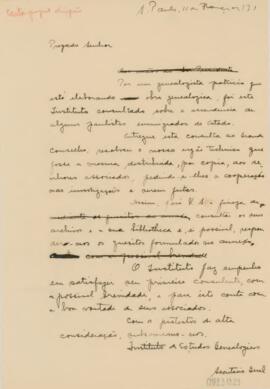 S. Paulo, 11 de Março de 1971
Prezado Senhor
Por um genealogista patricio que
está elaborando obra genealogica, foi este
Instituto consultado sobre a ascendencia de
alguns paulistas emigrados do Estado.
Entregue esta consulta ao
Conselho, resolveu o nosso orgão technico que
fosse a mesma distribuida, por copia, aos se-
nhores associados, pedindo-lhes a cooperação
nas investigações a serem feitas.
Assim, V. Sª
consulta os seus
archivos e a sua bibliotheca e, se possivel, respon-
der-nos os quesitos formulados no annexo,
com a possivel brevidade
O Instituto faz empenho
em satisfazer ao primeiro consulente, com
a possivel brevidade, e para isto conta com
a boa vontade de seus associados.
Com os protestos de alta
consideração, subscrevemo-nos,
Instituto de Estudos Genealogicos
Secretario Geral